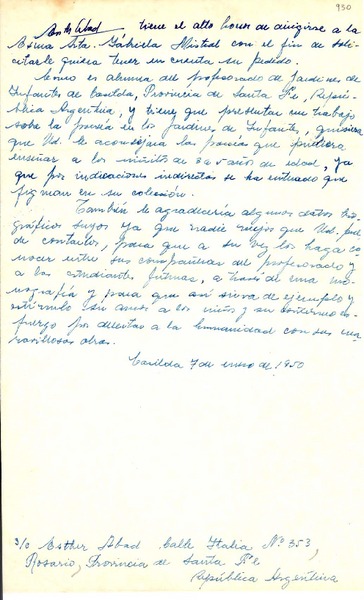 930
Esther Abad tiene el alto honor de dirigirse a la
Exma Srta. Gabriela Mistral con el fin de soli-
citarle quiera tener en cuenta su pedido.
Como es alumna del profesorado de Jardines de
Infantes de Casilda, Provincia de Santa Fe, Repú-
blica Argentina, y tiene que presentar un trabajo
sobre la poesía en los Jardines de Infantes, quisiera
que Ud. le aconsejara las poesías que pudiera
enseñar a los niñitos de 3 a 5 años de edad, ya
que por indicaciones indirectas se ha enterado que
figuran en su colección.
También le agradecería algunos datos bio-
gráficos suyos ya que nadie mejor que Ud. puede
contarlos, para que a su vez los haga co-
nocer entre sus compañeras del profesorado y
a las estudiantes futuras, a través de una mo-
nografía y para que así sirva de ejemplo y
estímulo su amor a los niños y su es-
fuerzo por deleitar a la humanidad con sus ma-
ravillosas obras.
Casilda 7 de enero de 1950
S/c Esther Abad Calle Italia Nº 353,
Rosario, Provincia de Santa Fe
República Argentina